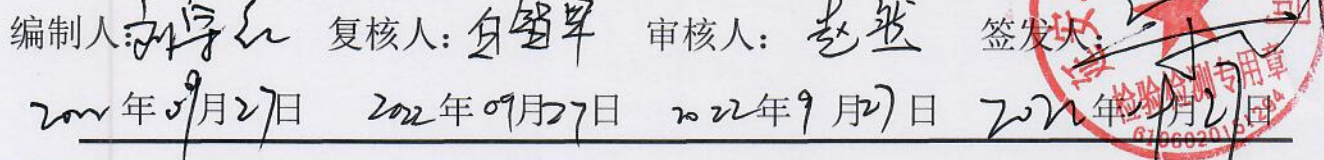 编制人: 复核人: 白智军 审核人: 赵燕 签发人:
2022年09月27日 2022年09月27日 2022年9月27日 2022年9月27日
检验检测专用章